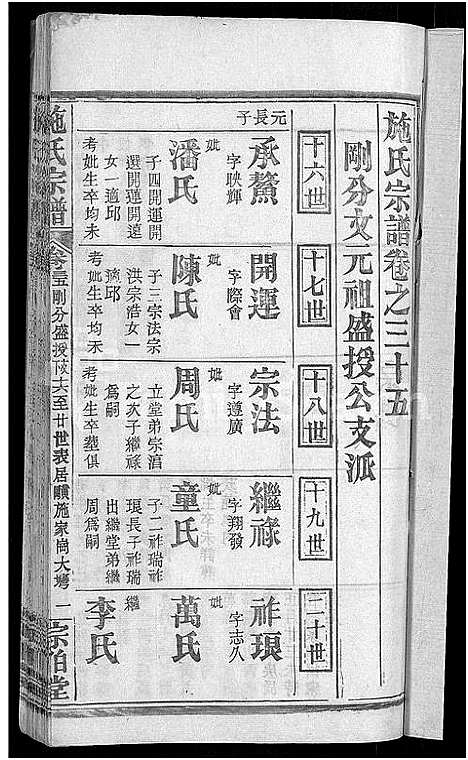 施氏宗譜卷之三十五
剛分文元祖盛授公支派
十六世
十七世
十八世
十九世
二十世
元長子
承鰲
字映輝
妣
潘氏
子四開運開
選開蓮開遠
女一適邱
考妣生卒均未
開運
字際會
妣
陳氏
子三宗法宗
洪宗浩女一
適邱
考妣生卒均未
宗法
字遵廣
妣
周氏
立堂弟宗滄
之次子繼祿
爲嗣
考妣生卒塟俱
繼祿
字翔發
妣
童氏
子二祚瑞祚
琅長子祚瑞
出繼堂弟繼
周爲嗣
祚琅
字志久
妣
萬氏
繼
李氏
施氏宗譜
卷三十五剛分盛授
十六至廿世表居
施家崗大塆
一
宗伯堂